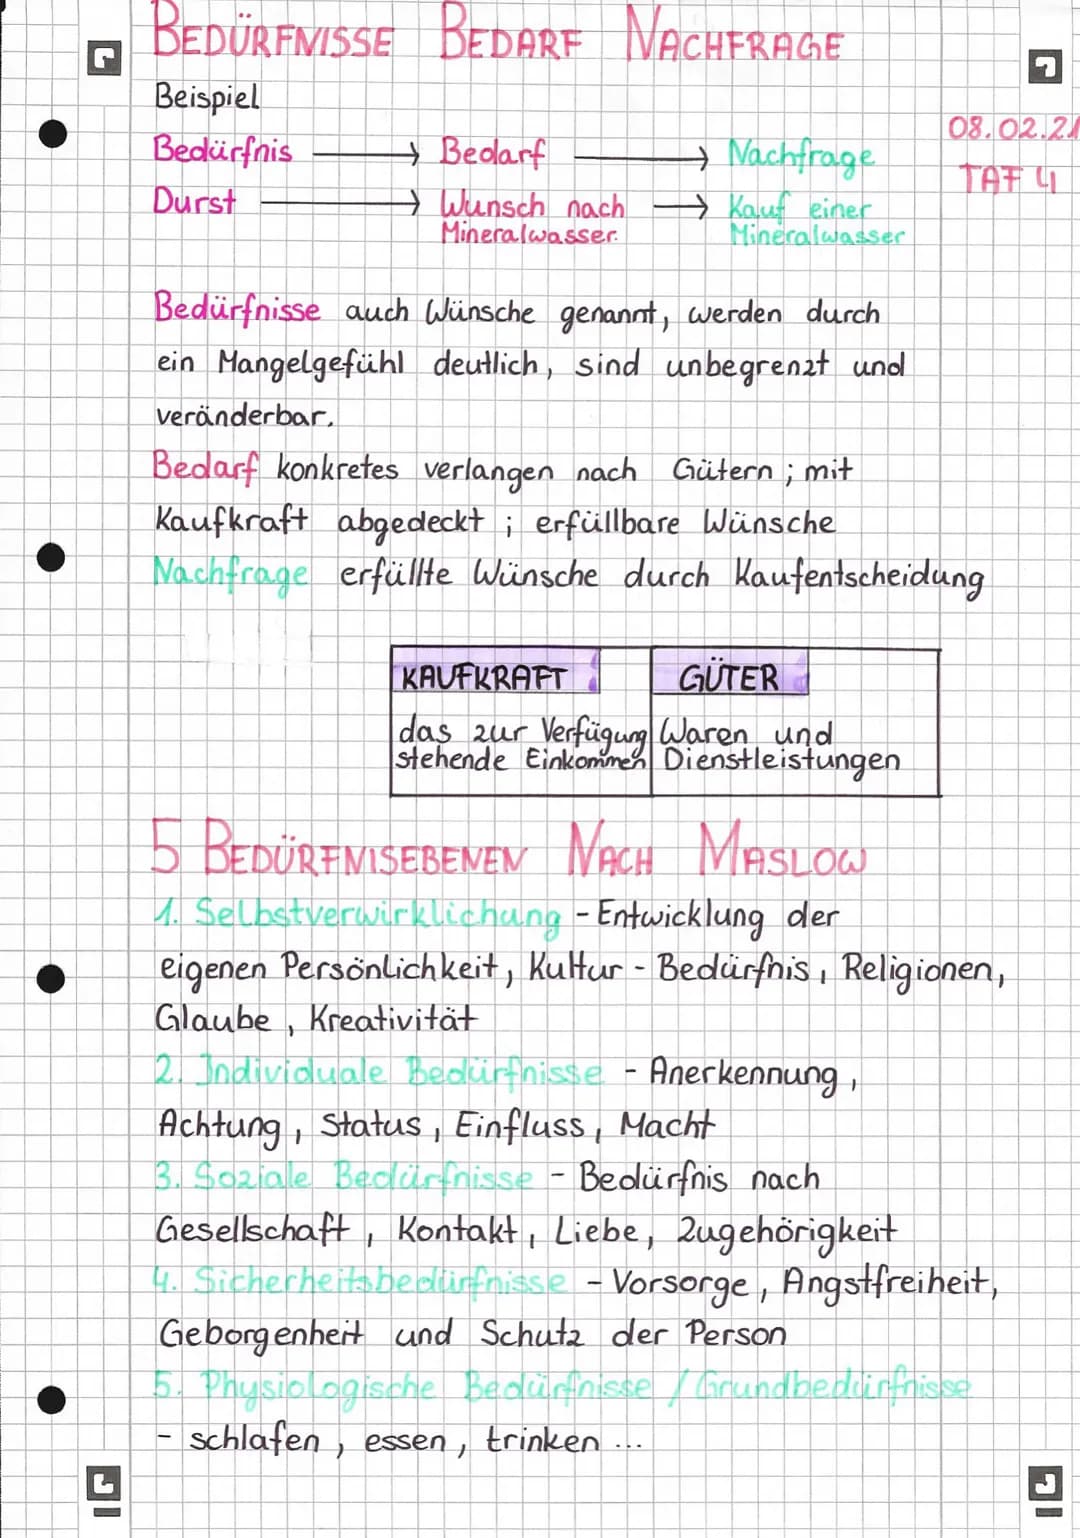 BEDÜRFNISSE BEDARF NACHFRAGE
Beispiel
08.02.21
Bedürfnis → Bedarf → Nachfrage
TAF 4
Durst → Wunsch nach → Kauf einer
Mineralwasser. Mineralwasser
Bedürfnisse auch Wünsche genannt, werden durch
ein Mangelgefühl deutlich, sind unbegrenzt und
veränderbar.
Bedarf konkretes verlangen nach Gütern ; mit
Kaufkraft abgedeckt ; erfüllbare Wünsche
Nachfrage erfüllte Wünsche durch Kaufentscheidung
KAUFKRAFT GÜTER
das zur Verfügung Waren und
stehende Einkommen Dienstleistungen
5 BEDÜRFNISEBENEN NACH MASLOW
1. Selbstverwirklichung - Entwicklung der
eigenen Persönlichkeit, Kultur - Bedürfnis, Religionen,
Glaube, Kreativität
2. Individuale Bedürfnisse - Anerkennung,
Achtung, Status, Einfluss, Macht
3. Soziale Bedürfnisse - Bedürfnis nach
Gesellschaft, Kontakt, Liebe, Zugehörigkeit
4. Sicherheitsbedürfnisse - Vorsorge, Angstfreiheit,
Geborgenheit und Schutz der Person
5. Physiologische Bedürfnisse / Grundbedürfnisse
- schlafen, essen, trinken ...